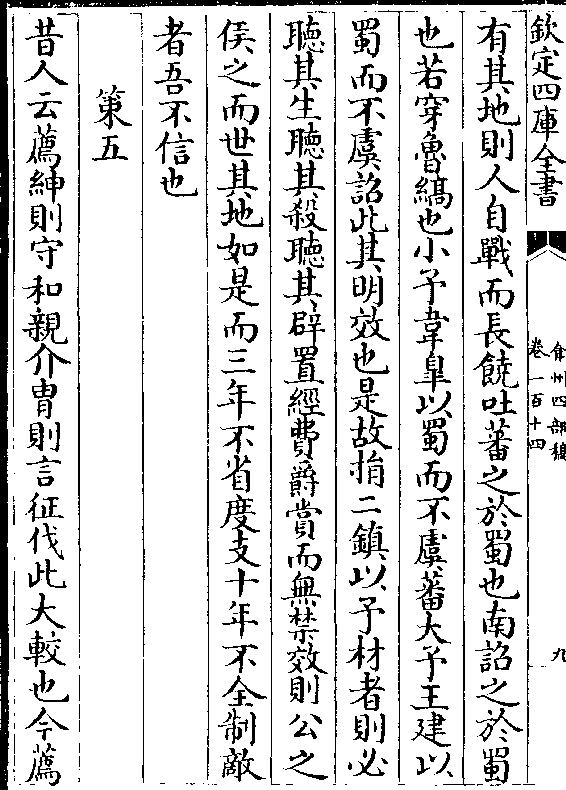 欽定四庫全書
弇州四部稿
卷一百十四
九
有其地則人自戰而長饒吐蕃之於蜀也南詔之於蜀
也若穿魯縞也小予韋臯以蜀而不虞蕃大予王建以
蜀而不虞詔此其明效也是故捐二鎮以予材者則必
聽其生聽其殺聽其辟置經費爵賞而無禁效則公之
侯之而世其地如是而三年不省度支十年不全制敵
者吾不信也
第五
昔人云薦紳則守和親介胄則言征伐此大較也今薦